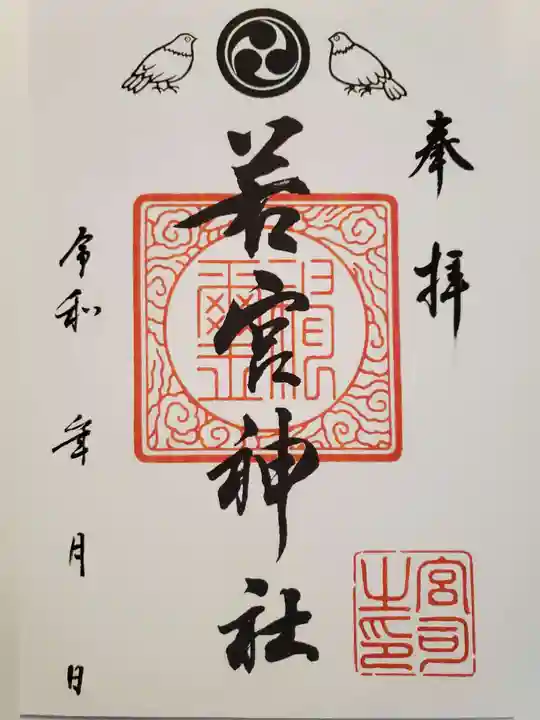 奉拝
若宮神社
令和 年 月 日
宮司之印